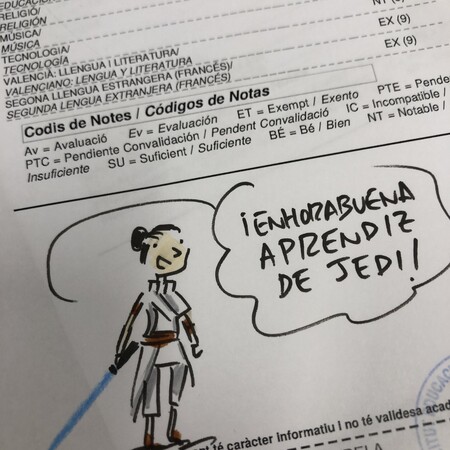 EDUCACIÓ
RELIGIÓ/
RELIGIÓN
MÚSICA/
MÚSICA
TECNOLOGIA/
TECNOLOGÍA
VALENCIÀ: LLENGUA I LITERATURA/
VALENCIANO: LENGUA Y LITERATURA
SEGONA LLENGUA ESTRANGERA (FRANCÉS)/
SEGUNDA LENGUA EXTRANJERA (FRANCÉS)
NT
EX (9)
EX (9)
Codis de Notes / Códigos de Notas
Av = Avaluació Ev = Evaluación ET = Exempt / Exento PTE = Pende
PTC = Pendiente Convalidación / Pendent Convalidació IC = Incompatible /
Insuficiente SU = Suficient / Suficiente BÉ = Bé / Bien NT = Notable /
¡ENHORABUENA
APRENDIZ
DE JEDI!
té caràcter informatiu I no té validesa acad